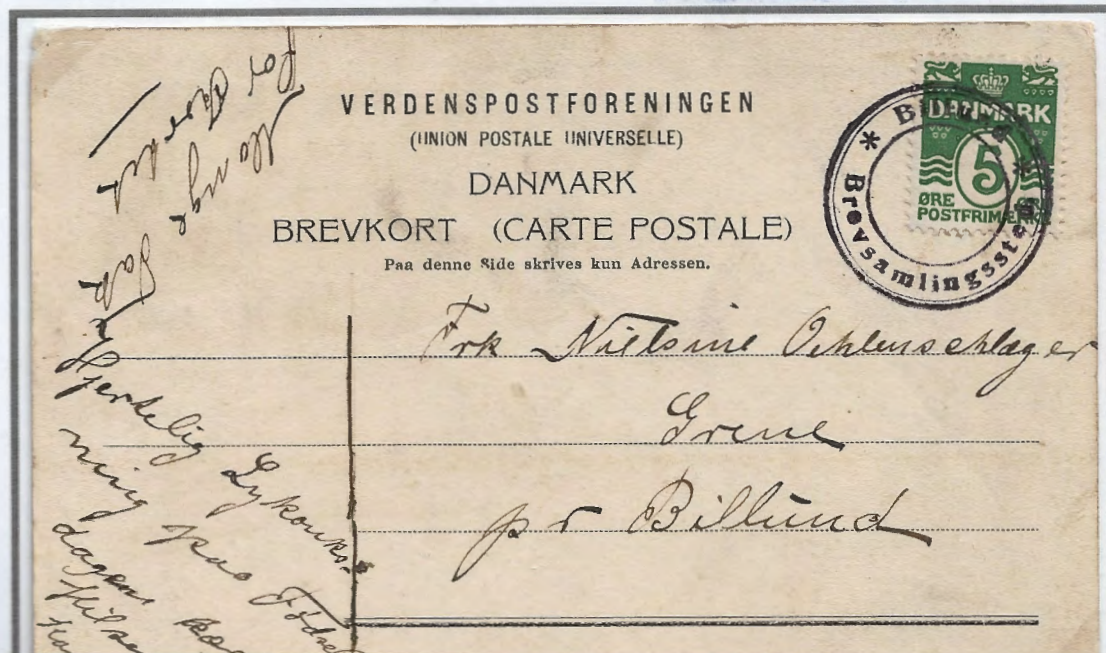 VERDENSPOSTFORENINGEN
(UNION POSTALE UNIVERSELLE)
DANMARK
BREVKORT (CARTE POSTALE)
Paa denne Side skrives kun Adressen.
DANMARK
5
ØRE
POSTFRIMÆRKE
* Brevsamlingssted *
Frk Nielsine Oehlenschlæger
Grene
pr Billund
Mange
Tak
for Kortet
Hjertelig Lykønsk-
ning paa Fødsels
dagen
Hilsen